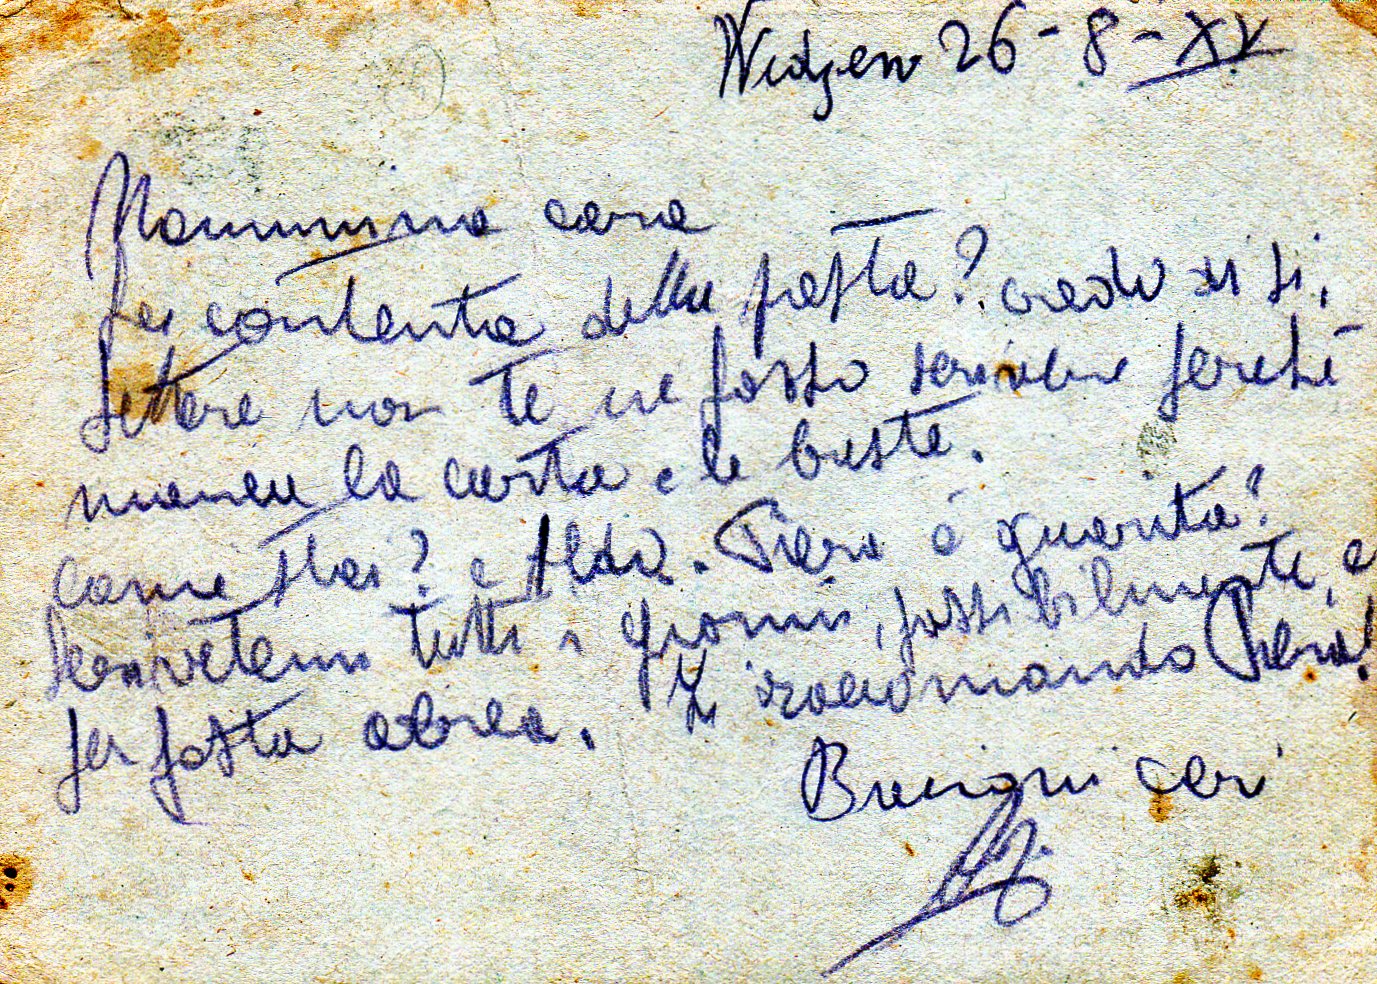 26-8-XV
Mammina cara
Sei contenta della posta? credo di si,
lettere non te ne posso scrivere perché
manca la carta e le buste.
Come stai? e Aldo. Piera è guarita?
Scrivetemi tutti i giorni, possibilmente, e
per posta aerea. raccomando Piera!
Bacioni cari